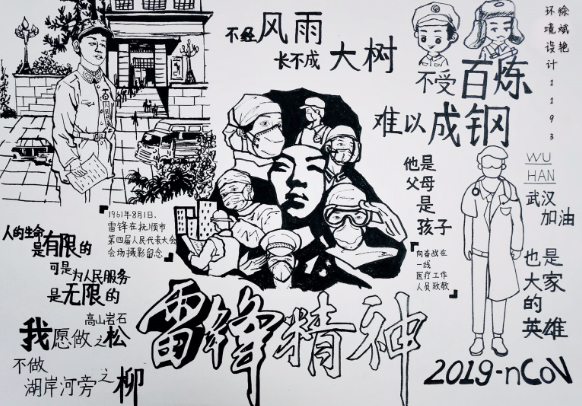 不经风雨
长不成大树
不受百炼
难以成钢
环境设计1193
徐斌艳
他是
父母
是
孩子
WU
HAN
武汉
加油
也是
大家
的
英雄
向奋战在
一线
医疗工作
人员致敬
1961年8月1日、
雷锋在抚顺市
第四届人民代表大会
会场摄影留念
人的生命
是有限的
可是
为人民服务
是无限的
我愿做高山岩石之松
不做
湖岸河旁之柳
雷锋精神
2019-nCoV